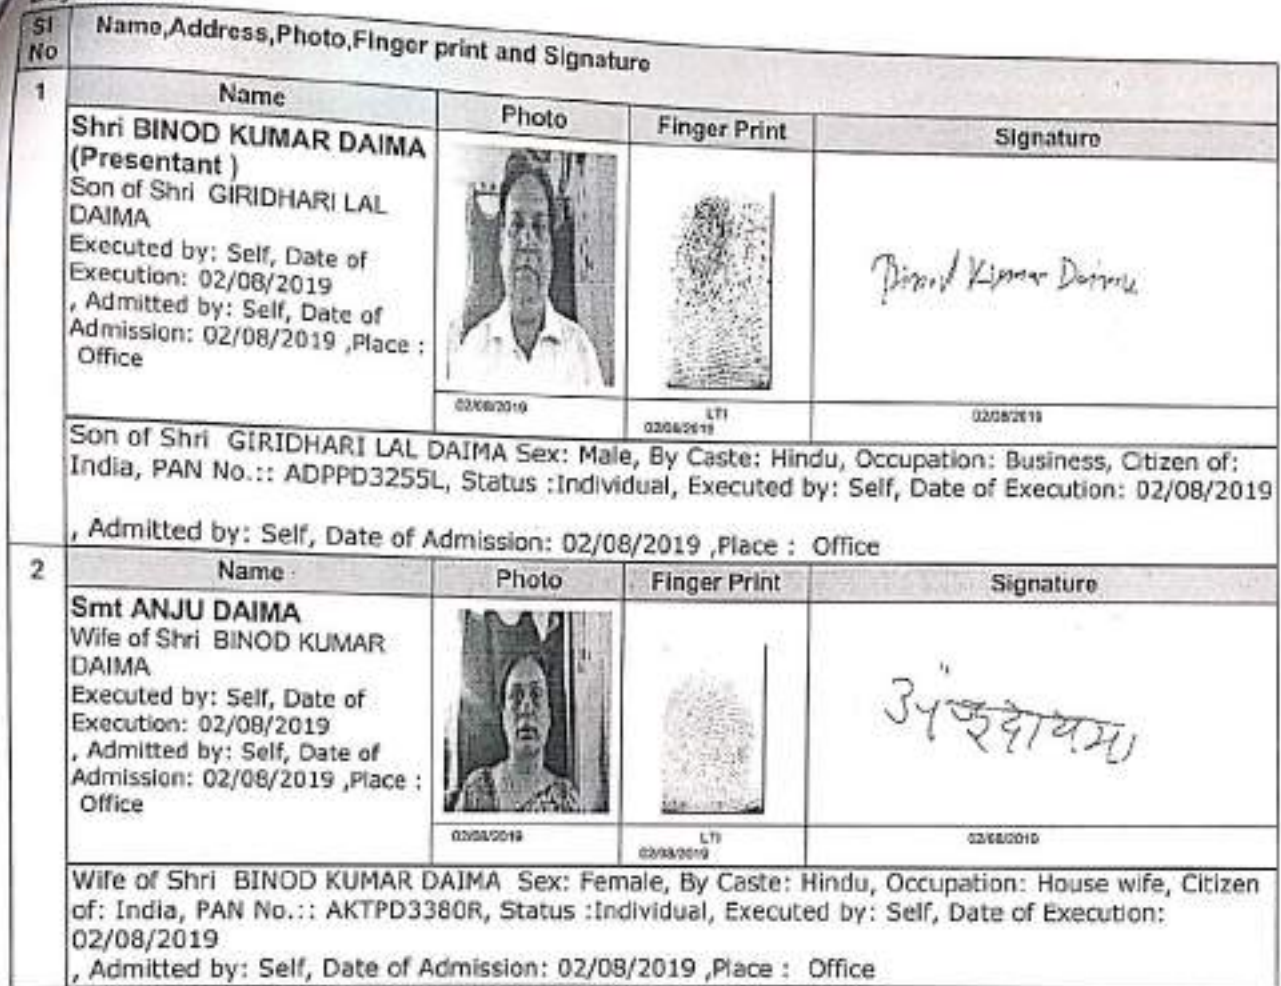 Sl No
Name,Address,Photo,Finger print and Signature
1
Name
Photo
Finger Print
Signature
Shri BINOD KUMAR DAIMA
(Presentant )
Son of Shri GIRIDHARI LAL
DAIMA
Executed by: Self, Date of
Execution: 02/08/2019
, Admitted by: Self, Date of
Admission: 02/08/2019 ,Place :
Office
Binod Kumar Daima
02/08/2019
LTI
02/08/2019
02/08/2019
Son of Shri GIRIDHARI LAL DAIMA Sex: Male, By Caste: Hindu, Occupation: Business, Citizen of:
India, PAN No.:: ADPPD3255L, Status :Individual, Executed by: Self, Date of Execution: 02/08/2019
, Admitted by: Self, Date of Admission: 02/08/2019 ,Place : Office
2
Name
Photo
Finger Print
Signature
Smt ANJU DAIMA
Wife of Shri BINOD KUMAR
DAIMA
Executed by: Self, Date of
Execution: 02/08/2019
, Admitted by: Self, Date of
Admission: 02/08/2019 ,Place :
Office
02/08/2019
LTI
02/08/2019
02/08/2019
Wife of Shri BINOD KUMAR DAIMA Sex: Female, By Caste: Hindu, Occupation: House wife, Citizen
of: India, PAN No.:: AKTPD3380R, Status :Individual, Executed by: Self, Date of Execution:
02/08/2019
, Admitted by: Self, Date of Admission: 02/08/2019 ,Place : Office